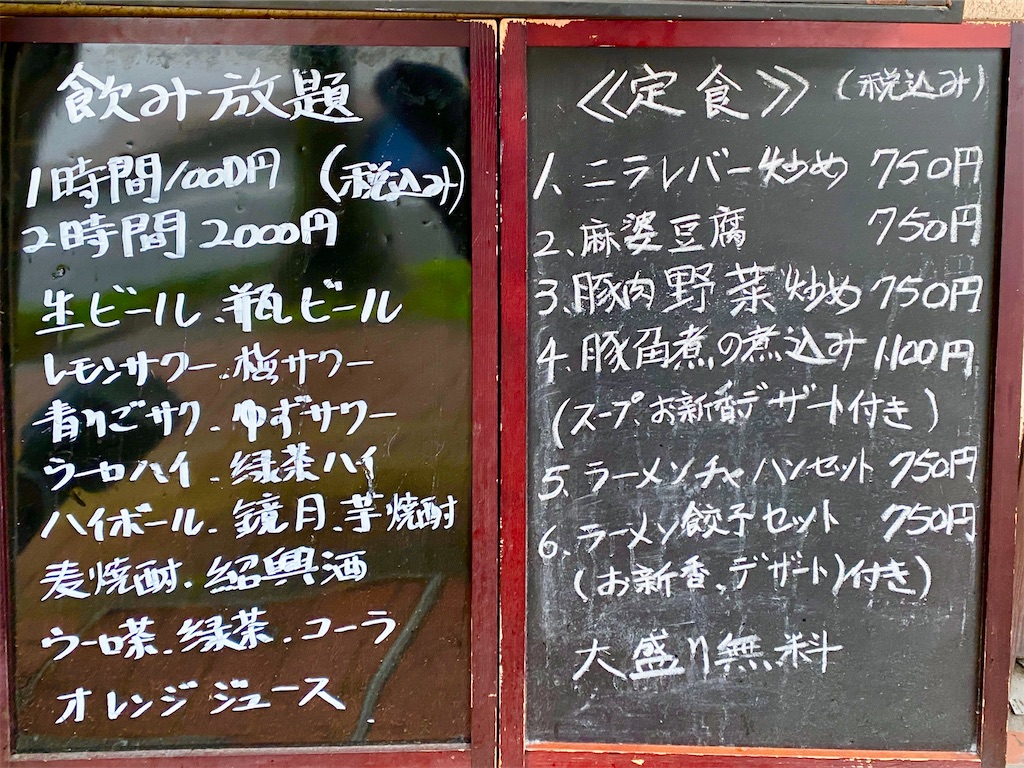 飲み放題
1時間1000円 (税込み)
2時間 2000円
生ビール、瓶ビール
レモンサワー、梅サワー
青りごサク、ゆずサワー
ウーロハイ、緑茶ハイ
ハイボール、鏡月、芋焼酎
麦焼酎、紹興酒
ウーロ茶、緑茶、コーラ
オレンジジュース
《定食》(税込み)
1、ニラレバー炒め 750円
2、麻婆豆腐 750円
3、豚肉野菜炒め 750円
4、豚角煮の煮込み 1,100円
(スープ、お新香デザート付き)
5、ラーメンチャハンセット 750円
6、ラーメン餃子セット 750円
(お新香、デザート)付き)
大盛り無料